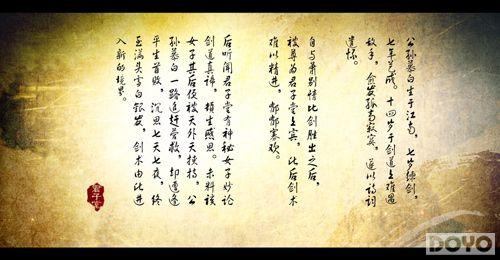 公孙慕白生于江南,七岁练剑,
七年成。十四岁于剑道上难遇
敌手,愈发孤高寂寞,遂以诗词
遣怀。
自与萧别情比剑胜出之后,
被尊为君子堂上宾,此后剑术
难以精进,郁郁寡欢。
后听闻君子堂有神秘女子妙论
剑道真谛,顿生感思。未料该
女子其后便被天外天掳,公
孙慕白一路追赶营救,却遭逢
平生首败,沉思七天七夜,终
至满头雪白银发,剑术由此进
入新的境界。
君子堂
DOYO